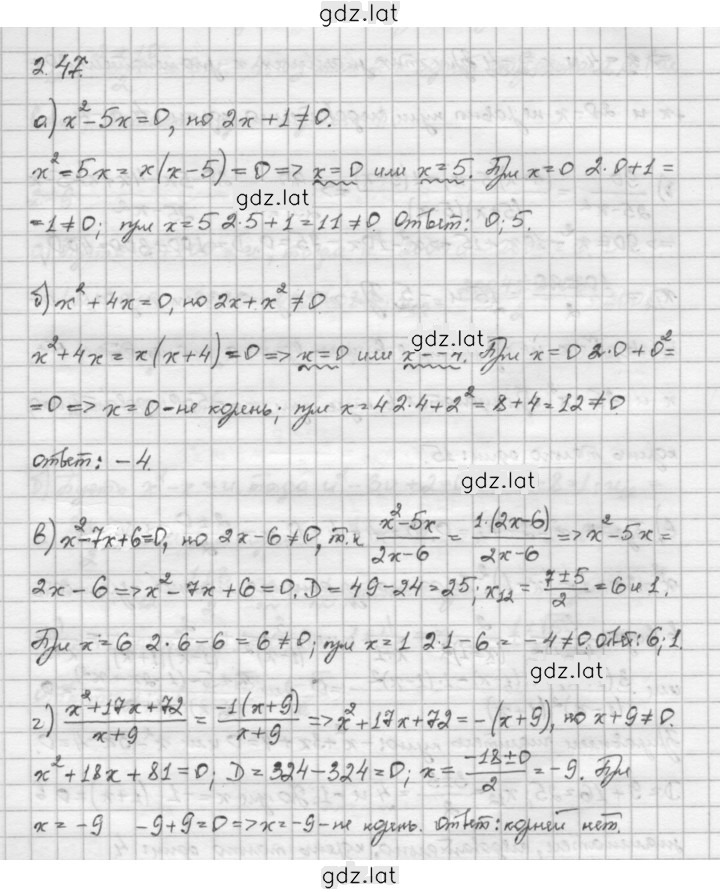 gdz.lat
2.47.
а) x²-5x=0, но 2x+1≠0.
x²=5x= x(x-5)=0=> x=0 или x=5. При x=0 2·0+1=
gdz.lat
=1≠0; при x=5 2·5+1=11≠0. Ответ: 0; 5.
б) x²+4x=0, но 2x+x²≠0
gdz.lat
x²+4x = x(x+4)=0=> x=0 или x=-4. При x=0 2·0+0²=
=0=> x=0-не корень; при x=4 2·4+2²=8+4=12≠0
ответ: -4.
gdz.lat
в) x²-7x+6=0, но 2x-6≠0, т.к. (x²-5x)/(2x-6) = (1·(2x-6))/(2x-6) => x²-5x=
2x-6=>x²-7x+6=0. D=49-24=25; x₁₂ = (7±5)/2 = 6 и 1.
При x=6 2·6-6=6≠0; при x=1 2·1-6=-4≠0. Ответ: 6; 1.
gdz.lat
г) (x²+17x+72)/(x+9) = (-1(x+9))/(x+9) => x²+17x+72=-(x+9), но x+9≠0.
x²+18x+81=0; D=324-324=0; x= (-18±0)/2 = -9. При
x=-9 -9+9=0=>x=-9-не корень. ответ: корней нет.
gdz.lat